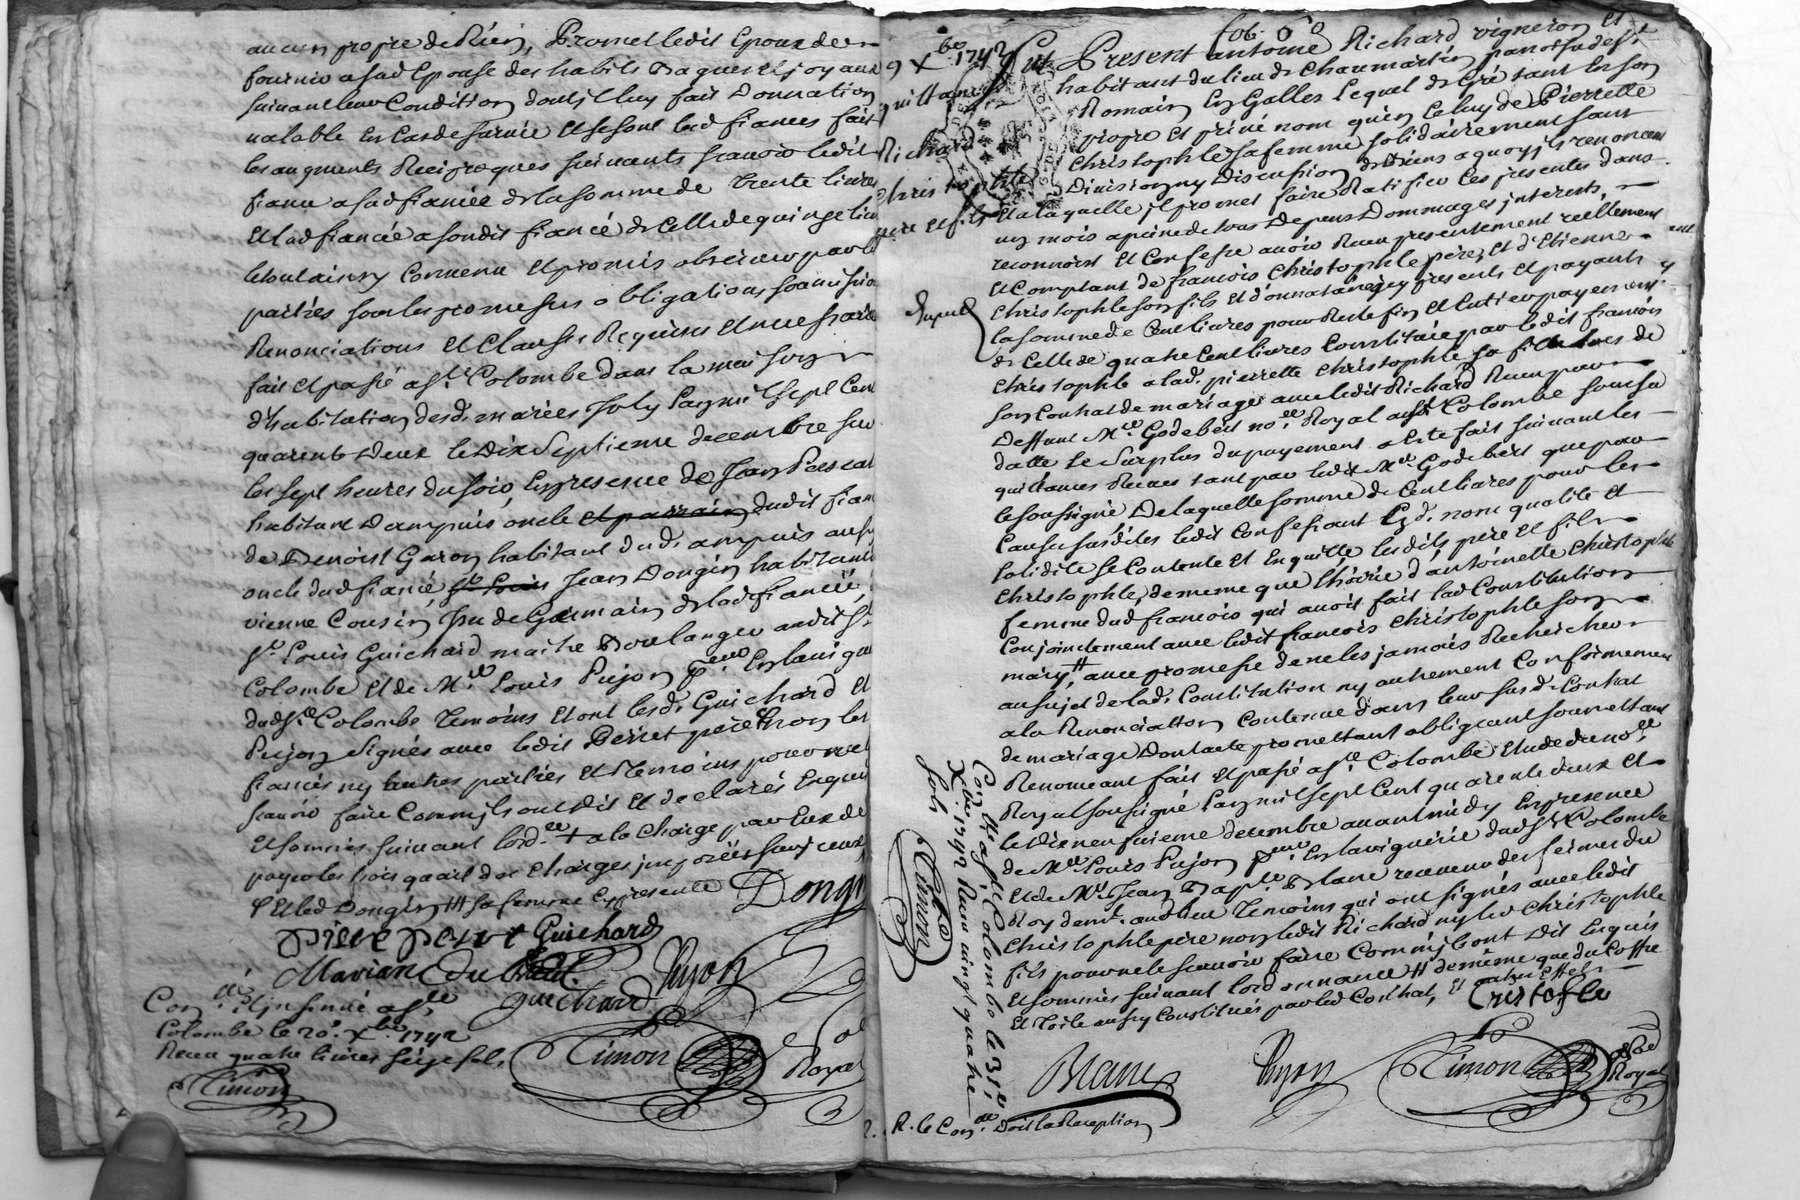 aucun propre de Rien, Promet ledit Epoux de
fournir a sad Epouse des habits Bagues et joyaux
suivant leur Condition dont il luy fait Donnation
valable en cas de survie et se sont lesd fiances fait
les augments Reciproques suivants scavoir ledit
fiancé a sad fiancée de la somme de trente livres
Et lad fiancée a sondit fiancé de Celle de quinze livres
le tout ainsy Convenu et promis observer par les
parties sous les promesses obligations soumissions
Renonciations et Clauses Requises et necessaires
fait et passé a Ste Colombe dans la maison
d'habitation desd. mariés Joly L'an mil sept Cent
quarente deux le Dix septieme decembre sur
les sept heures du soir, En presence de Jean Pascal
habitant Dampuis oncle et parrain dudit fiancé
de Benoist Garon habitant dud. ampuis aussy
oncle dud fiancé, Jean Dongin habitant
vienne Cousin de lad fiancée,
Sr. Louis Guichard maitre Boulanger audit Ste
Colombe et de Mre. Louis Pujon
dud Ste Colombe Temoins et ont lesd. Guichard et
Pujon signés avec ledit Perret pere non les
fiancés ny autres parties et temoins pour ne
scavoir faire Comm'ils ont Dit et declarés Enquis
et sommés suivant lord.ce a la Charge par Eux de
payer les frais
Et led Dongin sa femme cy presente Dongin
Guichard
Marian Du
guichard Pujon
Con.lé & Insinué a Ste
Colombe le 20e. Xbre. 1742
Receu quatre livres seize sols.
Timon
Timon
Royal
9 Xbre 1742
quittance
Richard
Christophle
pere et fils
Fut Present antoine Richard vigneron et
habitant du lieu de Chaumartin parroisse de St
Romain En Galles Lequel de gré tant En son
propre et privé nom qu'en Celuy de Pierrette
Christophle sa femme solidairement sans
Division ny Discussion de biens a quoy ils renoncent
Et a laquelle il promet faire Ratifier les presentes dans
un mois a peine de tous Depens Dommages interests,
reconnoist et Confesse avoir Receu presentement reellement
et Comptant de francois Christophle pere, et d'Etienne
Christophle son fils et donnataire cy presents et payants
la somme de Cent livres pour Reste fin et Entier payement
de Celle de quatre Cent livres Constituée par ledit francois
Christophle a lad. pierrette Christophle sa fille lors de
son Contrat de mariage avec ledit Richard Receu par
Deffunt Me. Godebert nore. Royal aud Ste Colombe sous sa
datte Le Surplus du payement a Eté fait suivant les
quittances Receues tant par ledit Me. Godebert que par
le soussigné De laquelle somme de Cent livres pour les
Causes susdites ledit Confessant Esd. nom qualité et
solidité se Contente et En quitte lesdits pere et fils
Christophle, de meme que l'hoirie d'antoinette Christophle
femme dud francois qui avoit fait lad Constitution
Conjointement avec ledit francois Christophle son
mary, avec promesse de ne les jamais Rechercher
au sujet de lad. Constitution ny autrement Conformement
a la Renonciation Contenue dans leur susd. Contrat
de mariage Dont acte promettant obligeant soumettant
Renonceant fait et passé a Ste Colombe Etude du nore
Royal soussigné L'an mil sept Cent quarente deux et
le Dix neufvieme decembre avant midy En presence
de Mre Louis Pujon En la viguerie dud Ste Colombe
et de Mr. Jean Bapte. Blanc receveur des fermes du
Roy demt. aud lieu Temoins qui ont signés avec ledit
Christophle pere non ledit Richard ny led Christophle
fils pour ne scavoir faire Comm'ils ont Dit Enquis
et sommés suivant lord onnance # de meme que du Coffre
et Toile aussy Constitués par led Contrat, et autres Effets
Cristofle
Blanc Pujon Timon
Royal
Con.llé a Ste Colombe le 31e
Xbre 1742 Receu vingt quatre
sols
Timon
R. le Con.lle Doit la Reception